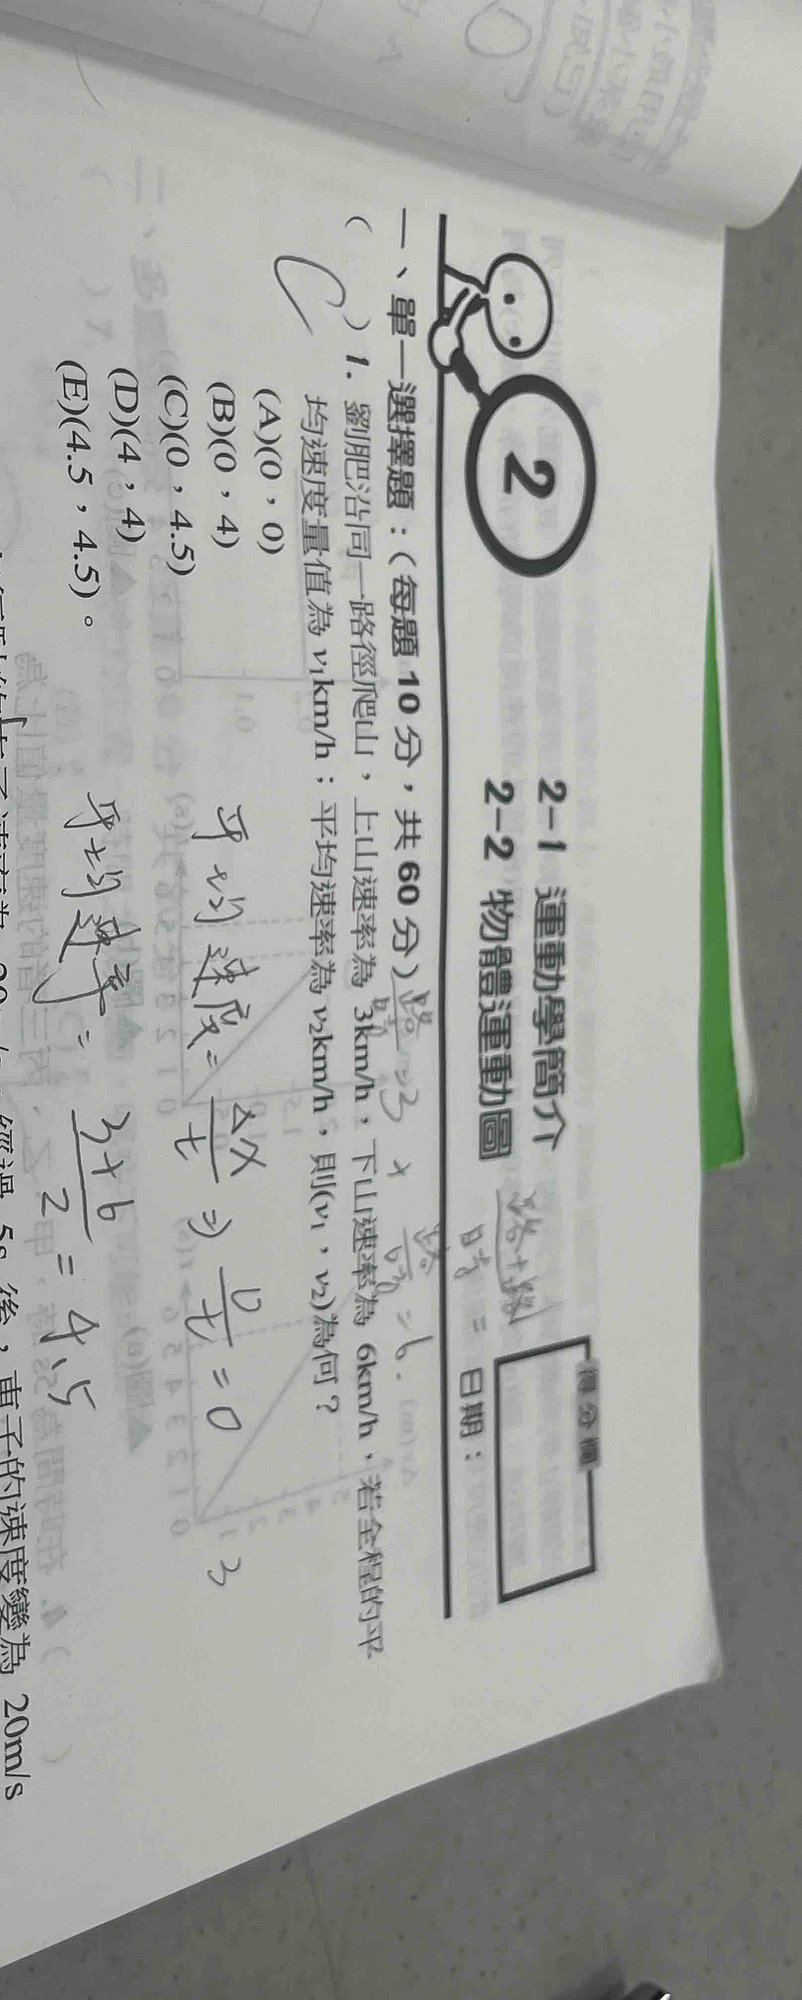 2
2-1 運動學簡介
2-2 物體運動圖
得分欄
日期：
路+路
時 =
一、單一選擇題：(每題 10 分，共 60 分)
路 = 3 +
路 = 6.
時
( C ) 1. 劉肥沿同一路徑爬山，上山速率為 3km/h，下山速率為 6km/h，若全程的平
均速度量值為 v₁km/h；平均速率為 v₂km/h，則(v₁，v₂)為何？
(A)(0，0)
(B)(0，4)
(C)(0，4.5)
(D)(4，4)
(E)(4.5，4.5)。
平均速度 = Δx/t ⇒ 0/t = 0
3
平均速率 = 3+6/2 = 4.5
經過 5s 後，車子的速度變為 20m/s